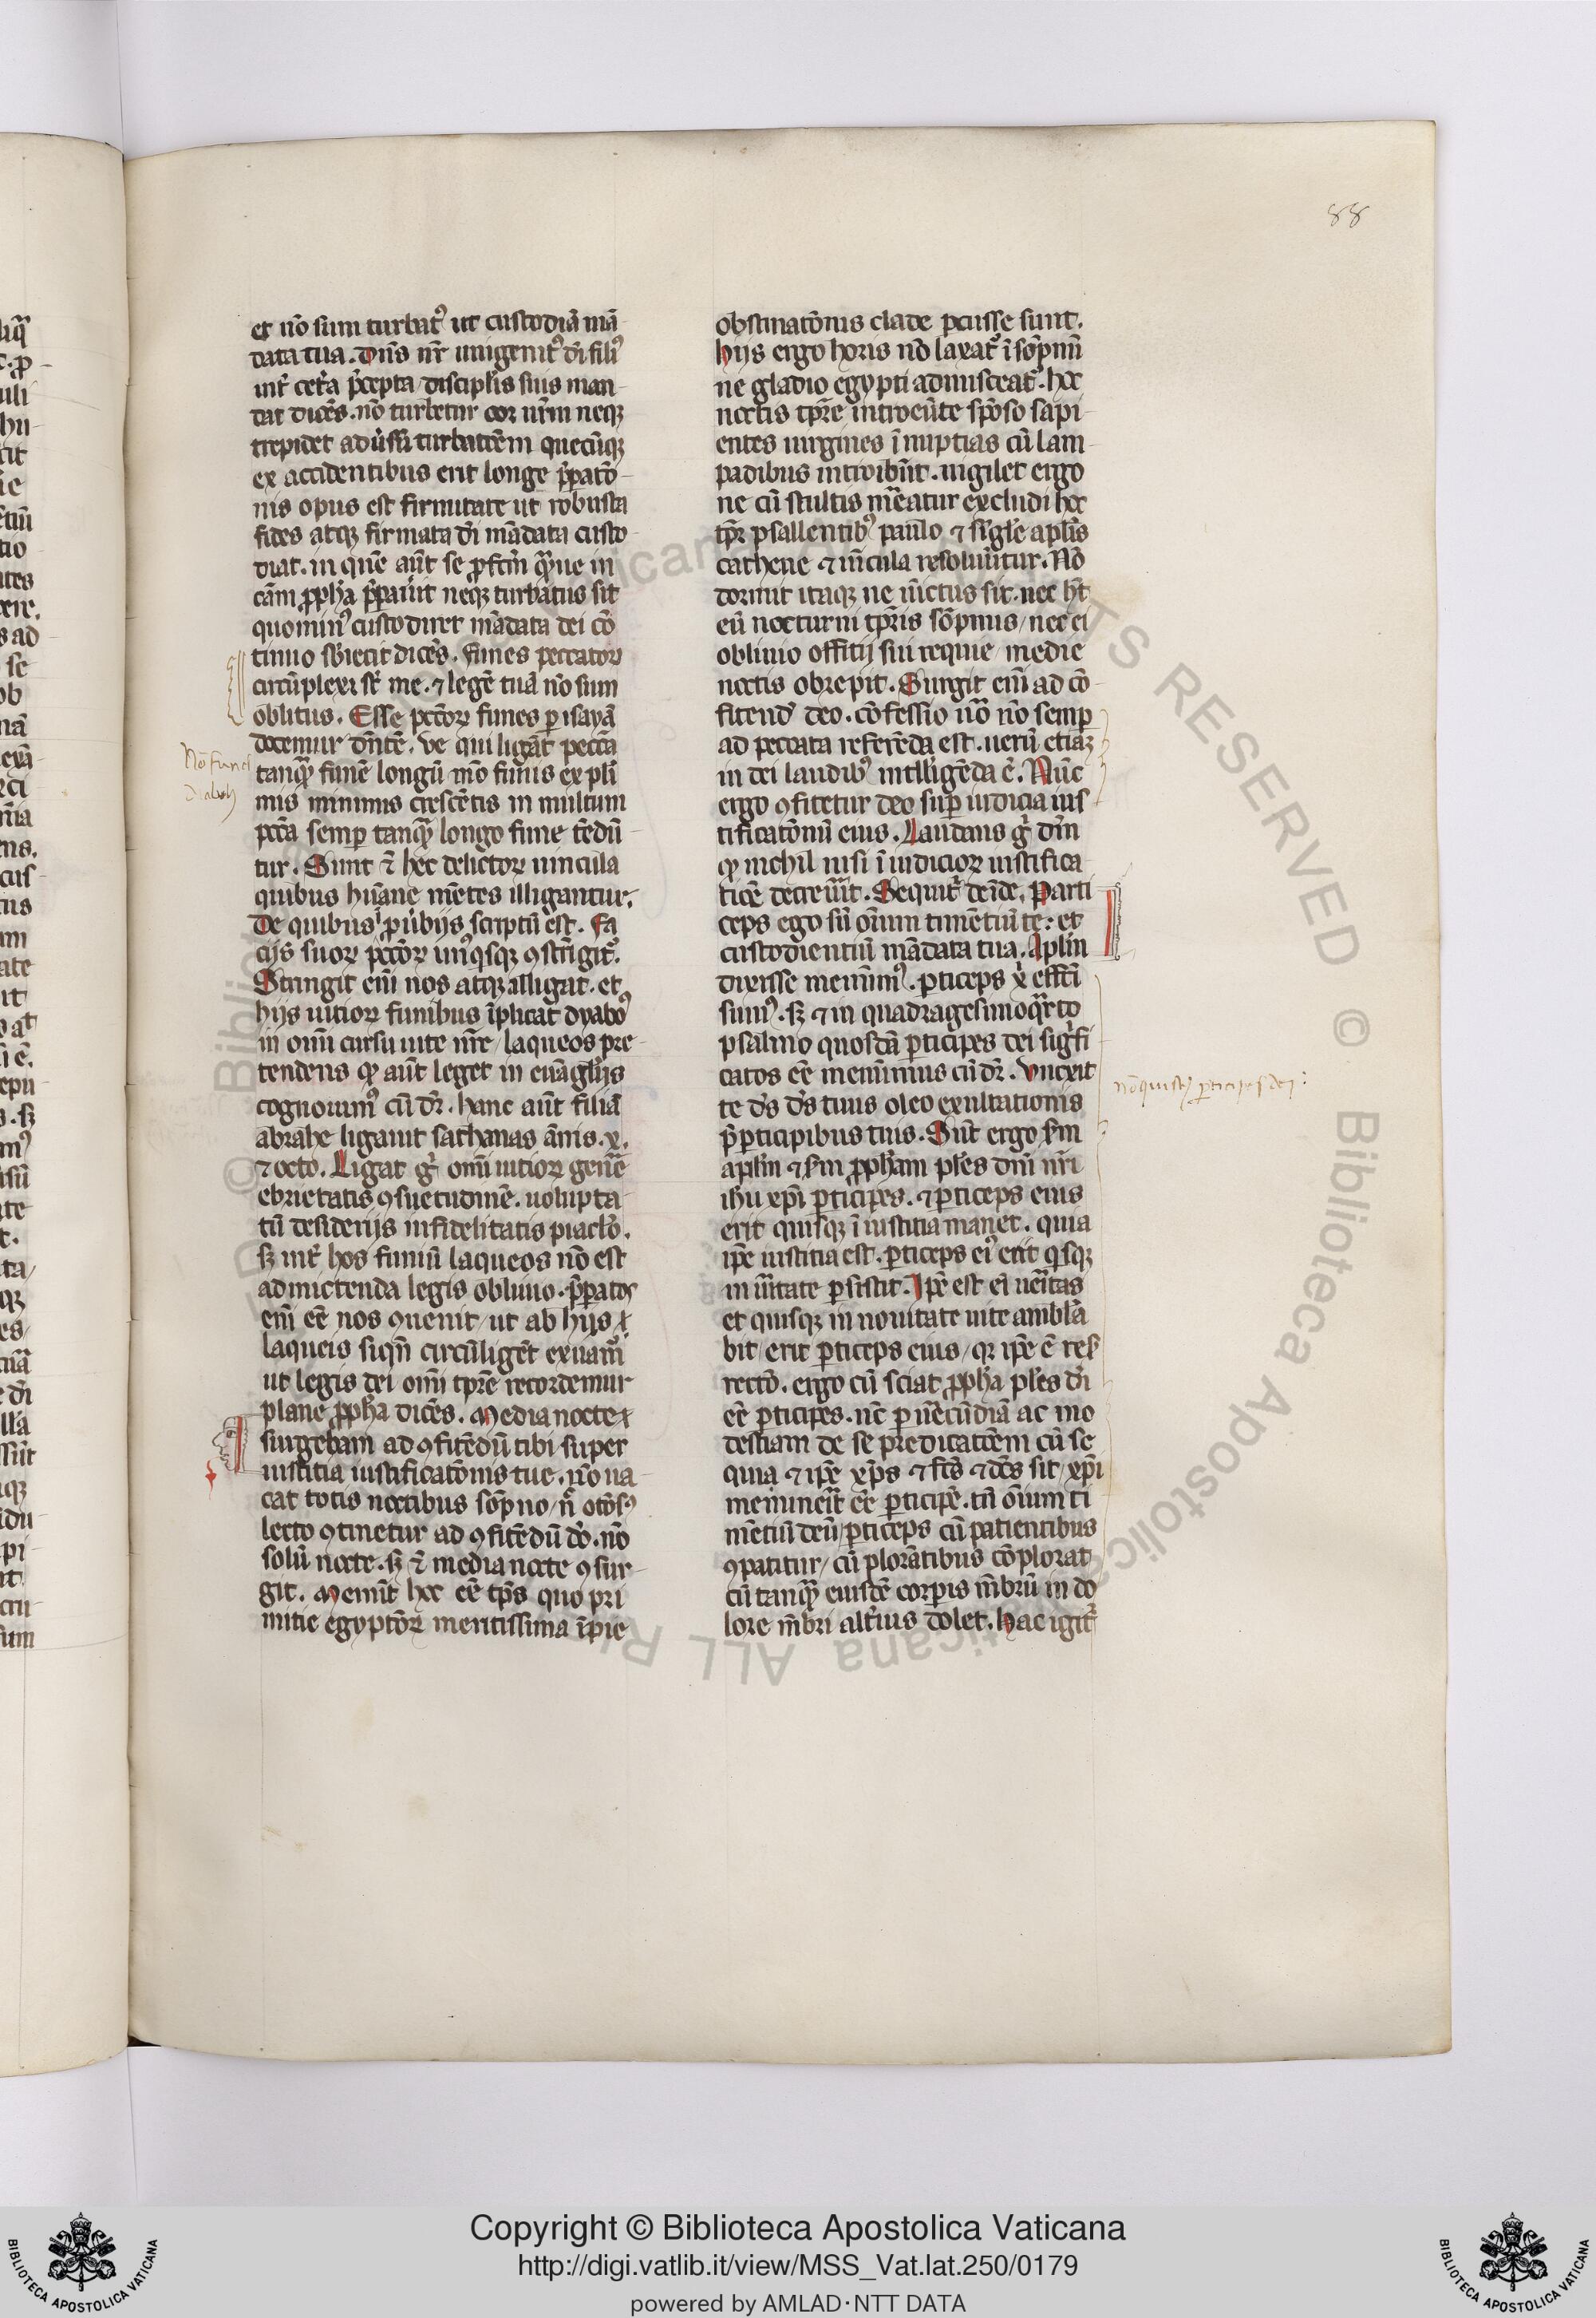 88
et nō sum turbatꝰ ut custodiā mā
data tua. Dn̄s nr̄ unigenitꝰ dī filiꝰ
int̄ cet̄a p̄cepta discipl̄is suis man
dat dicēs. nō turbetur cor ur̄m neqꝫ
trepidet adūsū turbatōem quecūqꝫ
ex accidentibus erit longe p̄paratō
nis opus est firmitate ut robusta
fides atqꝫ firmata dī mādata custo
diat. in quē aūt se
ꝓph̄a p̄pauit neqꝫ turbatus sit
quominꝰ custodiret mādata dei cō
tinuo sb̄iecit dicēs. funes peccatoꝝ
circūplexi sт̄ me. ⁊ legē tuā nō sum
oblitus. Esse pctōꝝ funes p ysayā
docemur dicētē. ve qui ligāt peccā
tanqꝫ funē longū
mis minimis crescētis in multum
pctā semp tanqꝫ longo fune tēdū
tur. Sunt ⁊ hec delictoꝝ uincula
quibus hūane mētes illigantur.
De quibus puerbijs scriptū est. Fu
nijs suoꝝ pctōꝝ unꝰqsqꝫ ꝯstrīgitꝛ.
Stringit eni nos atqꝫ alligat. et
hijs uitioꝝ funibus īplicat dyabolꝰ
in omī cursu uite nr̄e laqueos pre
tendens qꝫ aūt leget in euāglijs
cognouimꝰ cū dr̄. hanc aūt filiā
abrahe ligauit sathanas ānis. x.
⁊ octo. Ligat gͦ omī uitioꝝ genē
ebrietatis ꝯsuetudinē. uolupta
tū desiderijs infidelitatis piaclō.
sꝫ int̄ hos funiū laqueos nō est
admictenda legis obliuio. p̄patos
eni eē nos ꝯuenit ut ab hijs
laqueis siqn̄ circūligēt exuamꝰ
ut legis dei omī tpre recordemur
plane ꝓph̄a dicēs. Media nocte
surgebam ad ꝯfitēdū tibi super
iustitia iustificatōnis tue. nō ua
cat totis noctibus sōpno n̄ otōsꝰ
lecto ꝯtinetur ad ꝯfitēdū dō. nō
solū nocte. sꝫ ⁊ media nocte ꝯsur
git. Meminit hoc eē tp̄s quo pri
mitie egyptōꝝ meritissima īpie
obstinatōnis clade pcusse sunt.
hijs ergo horis nō laxat̄ ī sōpnū
ne gladio egypti admisceat̄. hoc
noctis tpr̄e introeūte spōso sapi
entes uirgines ī nuptias cū lam
padibus introibūt. uigilet ergo
ne cū stultis mēatur excludi hoc
tpr̄ psallentibꝰ paulo ⁊ siglē apl̄is
cathene ⁊ uīcula resoluūtur. Nō
dormit itaqꝫ ne uīctus sit. nec h̄t
eū nocturni tpr̄is sōpnus nec ei
obliuio offitij sui requie medie
noctis obrepit. Surgit eni ad cō
fitend̄ deo. cōfessio uō nō semp
ad peccata referēda est. uerū etiāꝫ
in dei laudibꝰ intlligēda ē. Nūc
ergo ꝯfitetur deo sup iudicia ius
tificatōnū eius. Laudans gͦ dn̄m
qꝫ nichil nisi ī iudicioꝝ iustifica
tiōe decreuit. Sequit̄ deīde. Parti
ceps ego sū oīum timētiū te: et
custodientiū mādata tua. Aplm̄
dixisse meminimꝰ. pticeps x̄ effcī
sumꝰ. sꝫ ⁊ in quadragesimoqrto
psalmo quosdā pticipes dei sigfi
catos eē meminimus cū dr̄. Unxit
te dꝰs dꝰs tuus oleo exultationis
p̄ pticipibus tuis. Sūt ergo sm
aplm̄ ⁊ sm ꝓph̄am plēs dn̄i nr̄i
ihu xp̄i pticipes. ⁊ pticeps eius
erit quisqꝫ ī iustitia manet. quia
ip̄e iustitia est. pticeps eiꝰ erit qsqꝫ
in uītate psistit. Ip̄e est ei ueītas
et quisqꝫ in nouitate uite ambla
bit erit pticeps eius qꝛ ip̄e ē res
rectō. ergo cū sciat ꝓph̄a plēs dī
eē pticipes. nc̄ p uēcūdiā ac mo
destiam de se predicatōem cū se
quia ⁊ ip̄e xp̄s ⁊ sēs ⁊ dēs sit xp̄i
meminerit eē pticipē. tn̄ oīum ti
mētiū deū pticeps cū patientibus
ꝯpatitur cū plorātibus cōplorat
cū tanqꝫ eiusdē corpis mēbrū in do
lore mēbri altīus dolet. Hac igit̄
Nō funes
diaboli
nō quis sit pticipes dei:
© Biblioteca Apostolica Vaticana ALL RIGHTS RESERVED
Copyright © Biblioteca Apostolica Vaticana
http://digi.vatlib.it/view/MSS_Vat.lat.250/0179
powered by AMLAD·NTT DATA
BIBLIOTECA APOSTOLICA VATICANA
BIBLIOTECA APOSTOLICA VATICANA